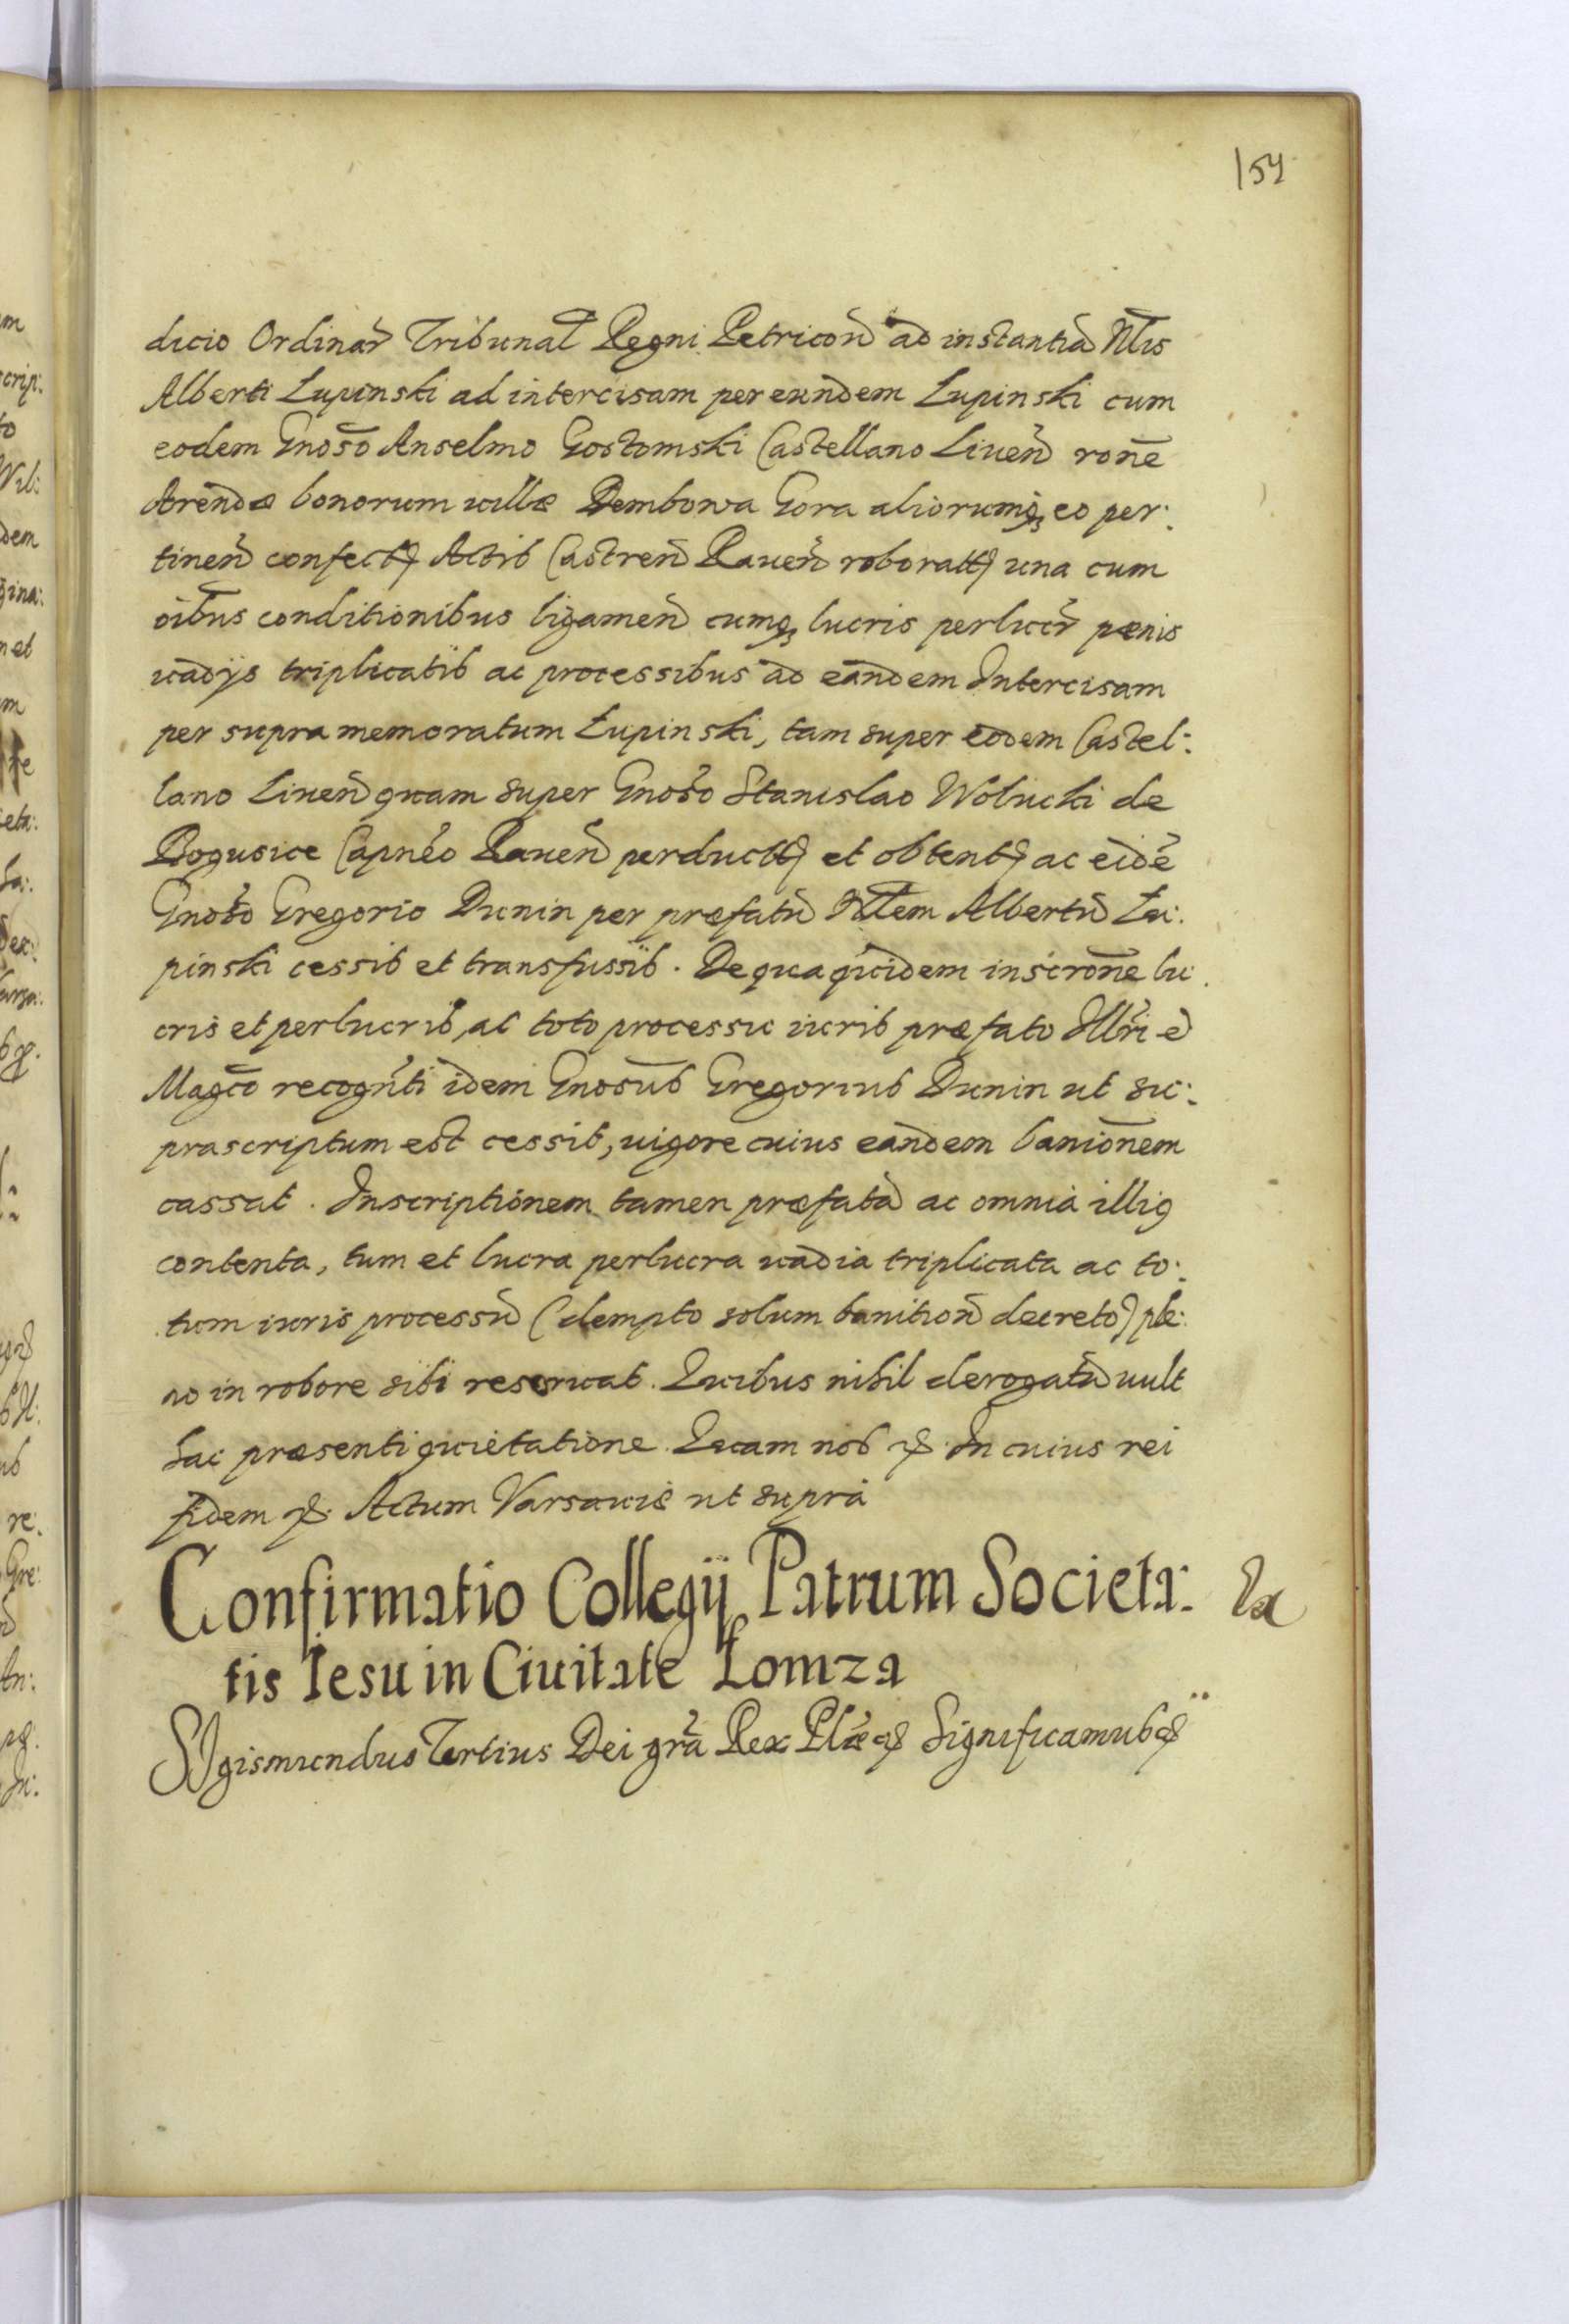 154
dicio Ordinar̃ Tribunal̃ Regni Petricoñ ad instantiã Nl̃is
Alberti Łupinski ad intercisam per eundem Łupinski cum
eodem Gnoso Anselmo Gostomski Castellano Liueñ rone
Arendæ bonorum uillæ Dembowa Gora aliorumq; eo per:
tineñ confect Actis Castreñ Raueñ roborat una cum
oibus conditionibus ligameñ cumq; lucris perlucr̃ pænis
uadijs triplicatis ac processibus ad eandem Intercisam
per supra memoratum Łupinski, tam super eodem Castel:
lano Liueñ quam super Gnoso Stanislao Wolucki de
Bogusice Capneo Raueñ perduct et obtent ac eidẽ
Gnoso Gregorio Dunin per præfatũ Nl̃em Albertũ Łu:
pinski cessis et transfusis. De qua quidem inscrone lu:
cris et perlucris, ac toto processu iuris præfato Illri e
Magco recognti idem Gnosus Gregorius Dunin ut su:
prascriptum est cessit, uigore cuius eandem banionem
cassat. Inscriptionem tamen præfatã ac omnia illiq
contenta, tum et lucra perlucra uadia triplicata ac to:
tum iuris processũ (dempto solum banitioñ decreto) ple:
no in robore sibi reseruat. Quibus nihil derogatũ uult
hac præsenti quietatione. Quam nos In cuius rei
fidem Actum Varsauiæ ut supra
Confirmatio Collegij Patrum Societa:
tis Iesu in Ciuitate Łomza
SIgismundus Tertius Dei gra Rex Plæ Significamus